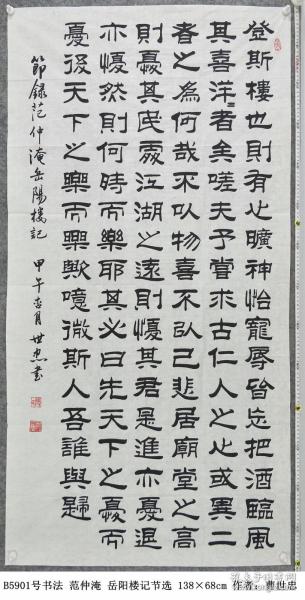 登斯樓也則有心曠神怡寵辱皆忘把酒臨風
其喜洋〻者矣嗟夫予嘗求古仁人之心或異二
者之為何哉不以物喜不以己悲居廟堂之高
則憂其民處江湖之遠則憂其君是進亦憂退
亦憂然則何時而樂耶其必曰先天下之憂而
憂後天下之樂而樂歟噫微斯人吾誰與歸
節錄范仲淹岳陽樓記
甲午杏月 世忠書
B5901号书法 范仲淹 岳阳楼记节选 138×68cm 作者：曹世忠